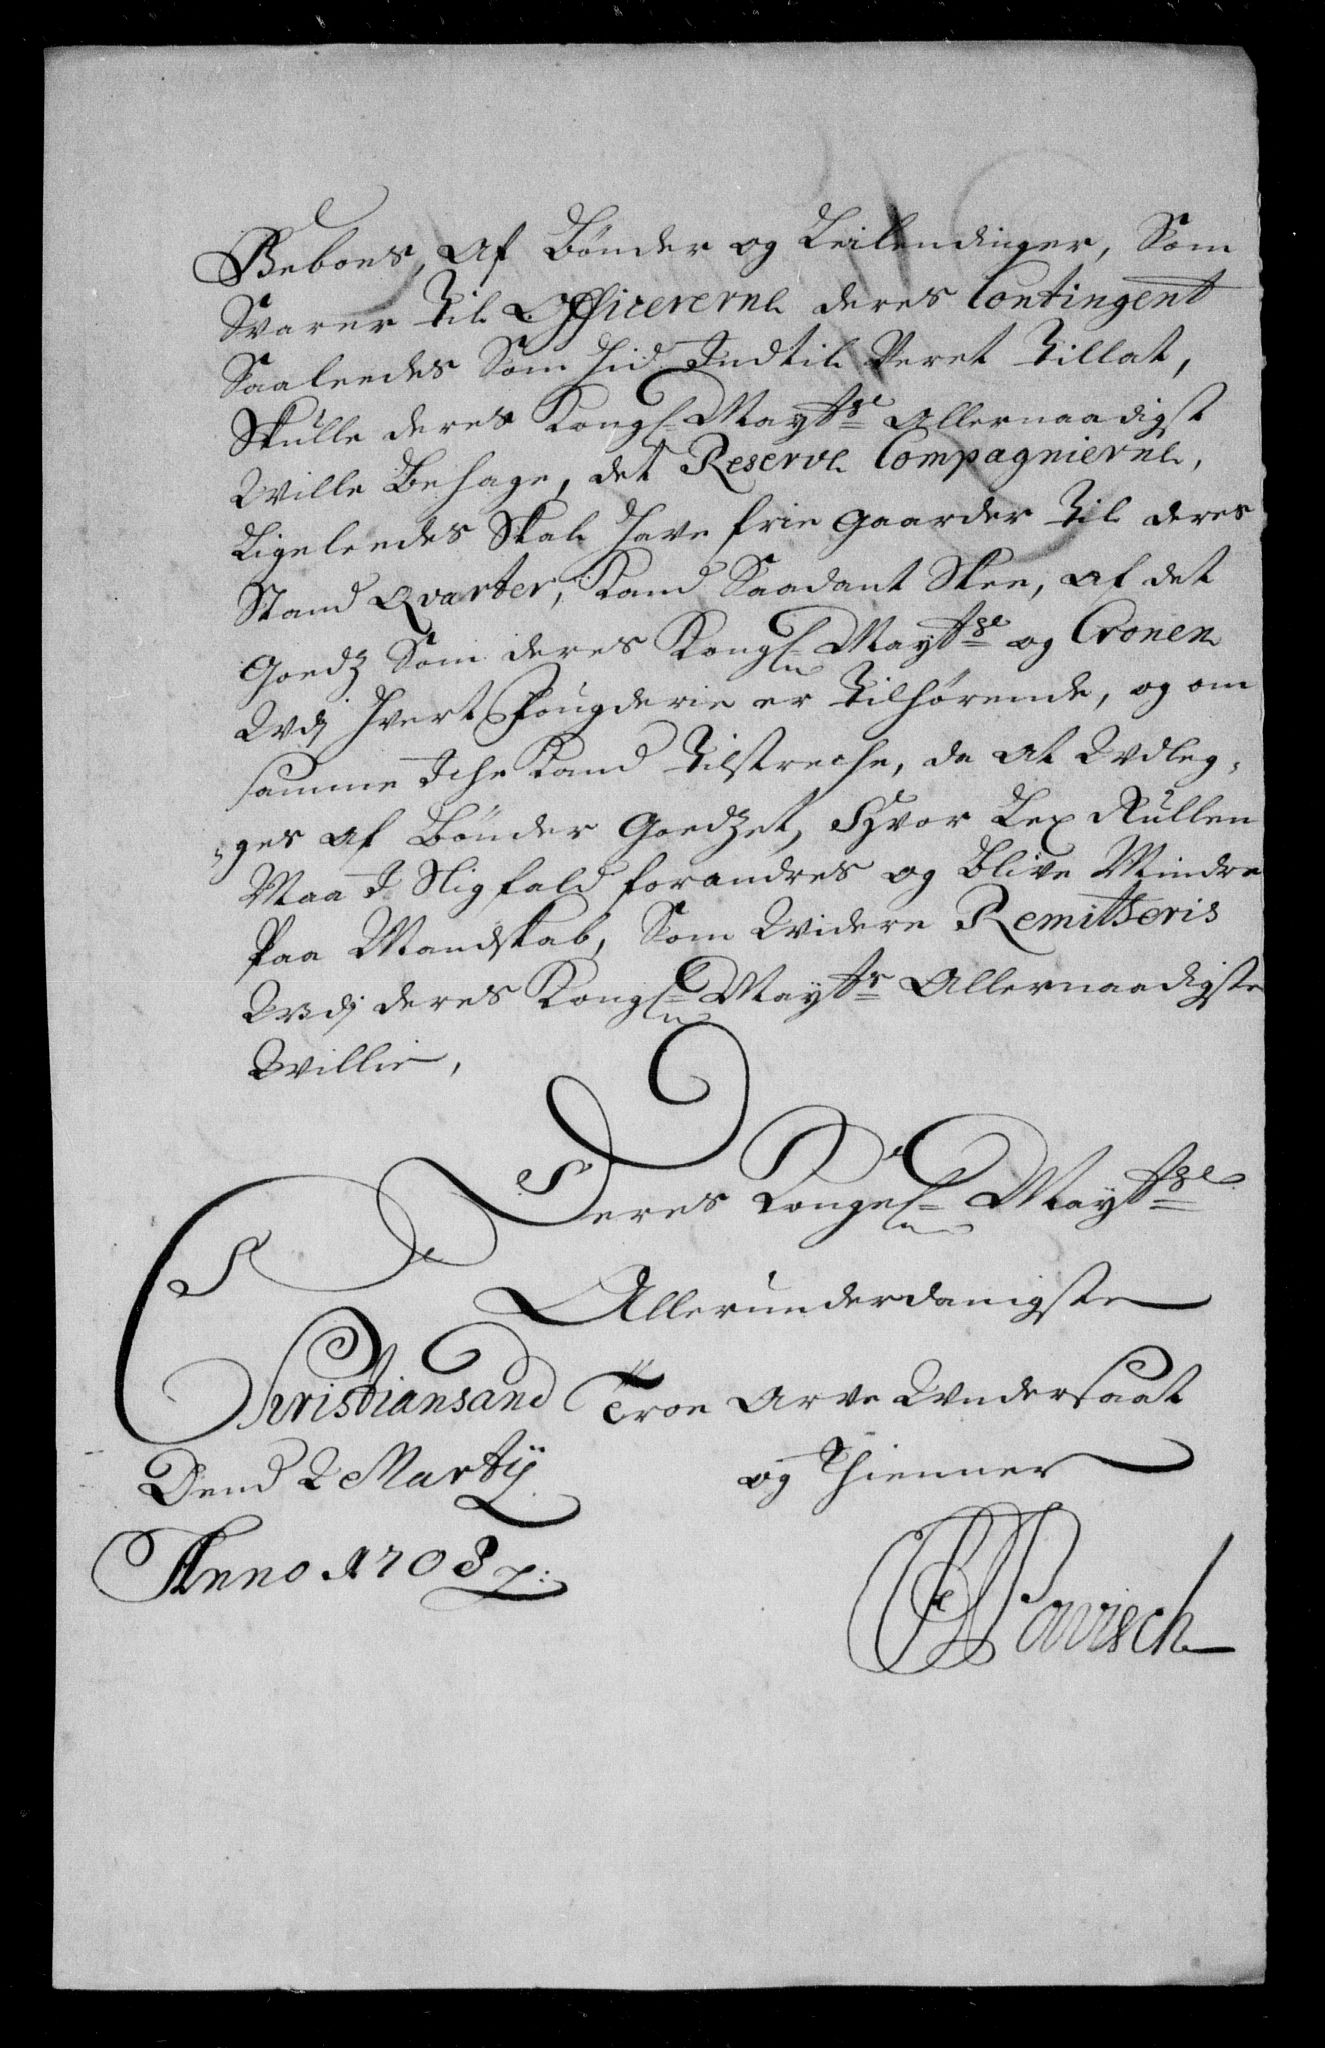 Beboes, af Bønder og Leilendinger, Som
Svarer til Officererne deres Contingent
Saaleedes Som hid Indtil Veret tillat,
Skulle deres Kongl: Maytt:s Allernaadigst
Wille Behage, det Reserve Compagnierne,
Ligeleedes Skal have frie gaarder til deres
Stand Qvarter, Kand Saadant Skee, af det
Goedz Som deres Kongl: Maytt:s og Cronen
Udj hvert Fougderie er tilhørende, og om
samme Iche Kand tilstreche, da at Udleg-
-ges af Bønder Goedzet, Hvor Lex Rullen
Maa I Sligfald forandres og blive Mindre
Paa Mandskab, Som Widere Remitteris
Udj deres Kongl: Maytt:s Allernaadigste
Willie,
Deres Kongel: Maytt:s
Allerunderdanigste
Christiansand Troe Arve Undersaat
Dend 2 Martÿ og Thienner
Anno 1703